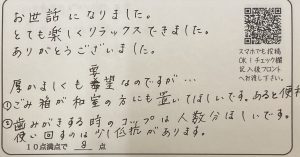 お世話になりました。
とても楽しくリラックスできました。
ありがとうございました。
厚かましくも要望なのですが…
①ごみ箱が和室の方にも置いてほしいです。あると便利
②歯みがきする時のコップは人数分ほしいです。
使い回すのは少し抵抗があります。
10点満点で 8 点
スマホでも投稿
OK！チェック欄
記入後フロント
へお渡し下さい。